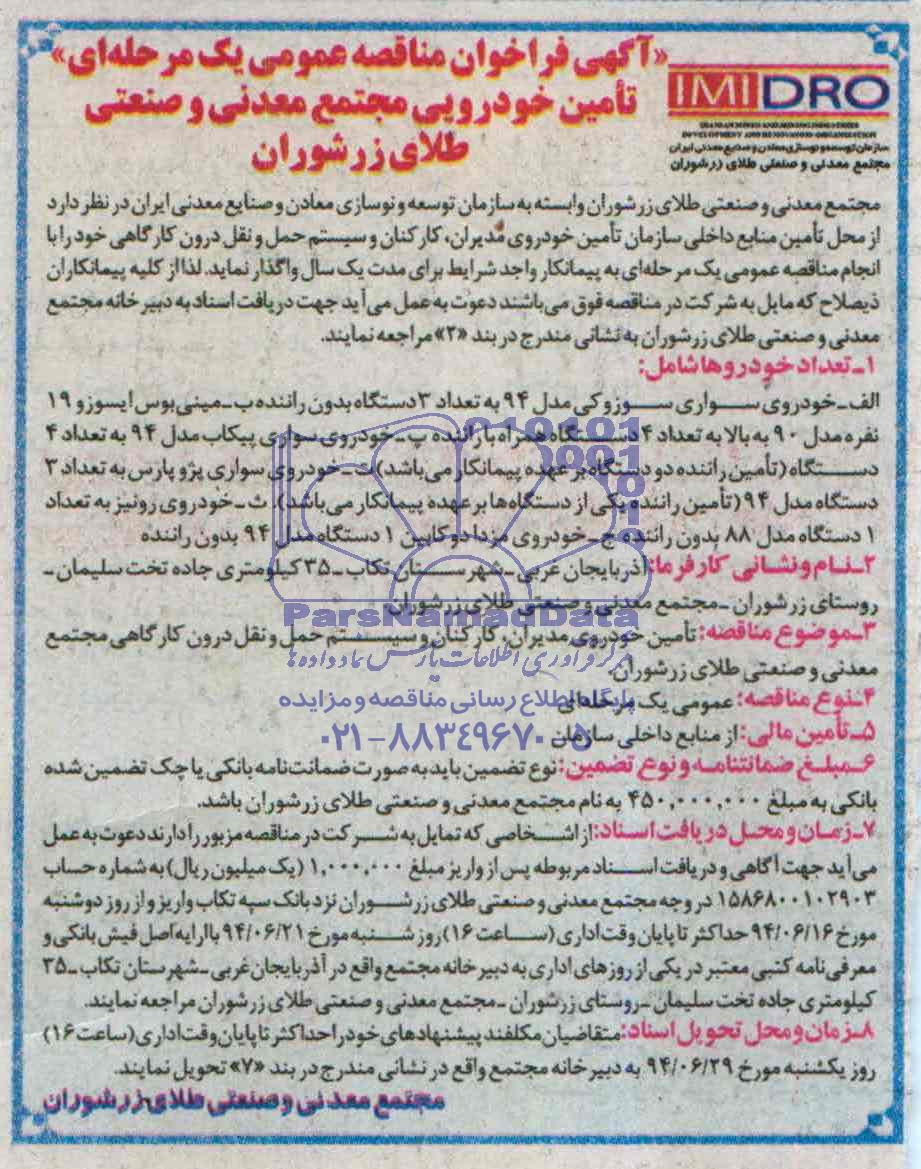 «آگهی فراخوان مناقصه عمومی یک مرحله‌ای»
تأمین خودرویی مجتمع معدنی و صنعتی
طلای زرشوران
IMIDRO
IRANIAN MINES AND MINING INDUSTRIES
DEVELOPMENT AND RENOVATION ORGANIZATION
سازمان توسعه و نوسازی معادن و صنایع معدنی ایران
مجتمع معدنی و صنعتی طلای زرشوران
مجتمع معدنی و صنعتی طلای زرشوران وابسته به سازمان توسعه و نوسازی معادن و صنایع معدنی ایران در نظر دارد
از محل تأمین منابع داخلی سازمان تأمین خودروی مدیران، کارکنان و سیستم حمل و نقل درون کارگاهی خود را با
انجام مناقصه عمومی یک مرحله‌ای به پیمانکار واجد شرایط برای مدت یک سال واگذار نماید. لذا از کلیه پیمانکاران
ذیصلاح که مایل به شرکت در مناقصه فوق می‌باشند دعوت به عمل می‌آید جهت دریافت اسناد به دبیرخانه مجتمع
معدنی و صنعتی طلای زرشوران به نشانی مندرج در بند «۲» مراجعه نمایند.
۱ـ تعداد خودروها شامل:
الف ـ خودروی سواری سوزوکی مدل ۹۴ به تعداد ۳ دستگاه بدون راننده ب ـ مینی‌بوس ایسوزو ۱۹
نفره مدل ۹۰ به بالا به تعداد ۴ دستگاه همراه با راننده پ ـ خودروی سواری پیکاب مدل ۹۴ به تعداد ۴
دستگاه (تأمین راننده دو دستگاه بر عهده پیمانکار می‌باشد) ت ـ خودروی سواری پژو پارس به تعداد ۳
دستگاه مدل ۹۴ (تأمین راننده یکی از دستگاه‌ها بر عهده پیمانکار می‌باشد). ث ـ خودروی رونیز به تعداد
۱ دستگاه مدل ۸۸ بدون راننده ج ـ خودروی مزدا دو کابین ۱ دستگاه مدل ۹۴ بدون راننده
۲ـ نام و نشانی کارفرما: آذربایجان غربی ـ شهرستان تکاب ـ ۳۵ کیلومتری جاده تخت سلیمان ـ
روستای زرشوران ـ مجتمع معدنی و صنعتی طلای زرشوران
ParsNamadData
۳ـ موضوع مناقصه: تأمین خودروی مدیران، کارکنان و سیستم حمل و نقل درون کارگاهی مجتمع
مرکز فرآوری اطلاعات پارس نماد داده‌ها
معدنی و صنعتی طلای زرشوران.
۴ـ نوع مناقصه: عمومی یک مرحله‌ای
پایگاه اطلاع رسانی مناقصه و مزایده
۵ـ تأمین مالی: از منابع داخلی سازمان
۰۲۱-۸۸۳۴۹۶۷۰-۵
۶ـ مبلغ ضمانتنامه و نوع تضمین: نوع تضمین باید به صورت ضمانت‌نامه بانکی یا چک تضمین شده
بانکی به مبلغ ۴۵۰,۰۰۰,۰۰۰ به نام مجتمع معدنی و صنعتی طلای زرشوران باشد.
۷ـ زمان و محل دریافت اسناد: از اشخاصی که تمایل به شرکت در مناقصه مزبور را دارند دعوت به عمل
می‌آید جهت آگاهی و دریافت اسناد مربوطه پس از واریز مبلغ ۱,۰۰۰,۰۰۰ (یک میلیون ریال) به شماره حساب
۱۵۸۶۸۰۰۱۰۲۹۰۳ در وجه مجتمع معدنی و صنعتی طلای زرشوران نزد بانک سپه تکاب واریز و از روز دوشنبه
مورخ ۹۴/۰۶/۱۶ حداکثر تا پایان وقت اداری (ساعت ۱۶) روز شنبه مورخ ۹۴/۰۶/۲۱ با ارایه اصل فیش بانکی و
معرفی نامه کتبی معتبر در یکی از روزهای اداری به دبیرخانه مجتمع واقع در آذربایجان غربی ـ شهرستان تکاب ـ ۳۵
کیلومتری جاده تخت سلیمان ـ روستای زرشوران ـ مجتمع معدنی و صنعتی طلای زرشوران مراجعه نمایند.
۸ـ زمان و محل تحویل اسناد: متقاضیان مکلفند پیشنهادهای خود را حداکثر تا پایان وقت اداری (ساعت ۱۶)
روز یکشنبه مورخ ۹۴/۰۶/۲۹ به دبیرخانه مجتمع واقع در نشانی مندرج در بند «۷» تحویل نمایند.
مجتمع معدنی و صنعتی طلای زرشوران